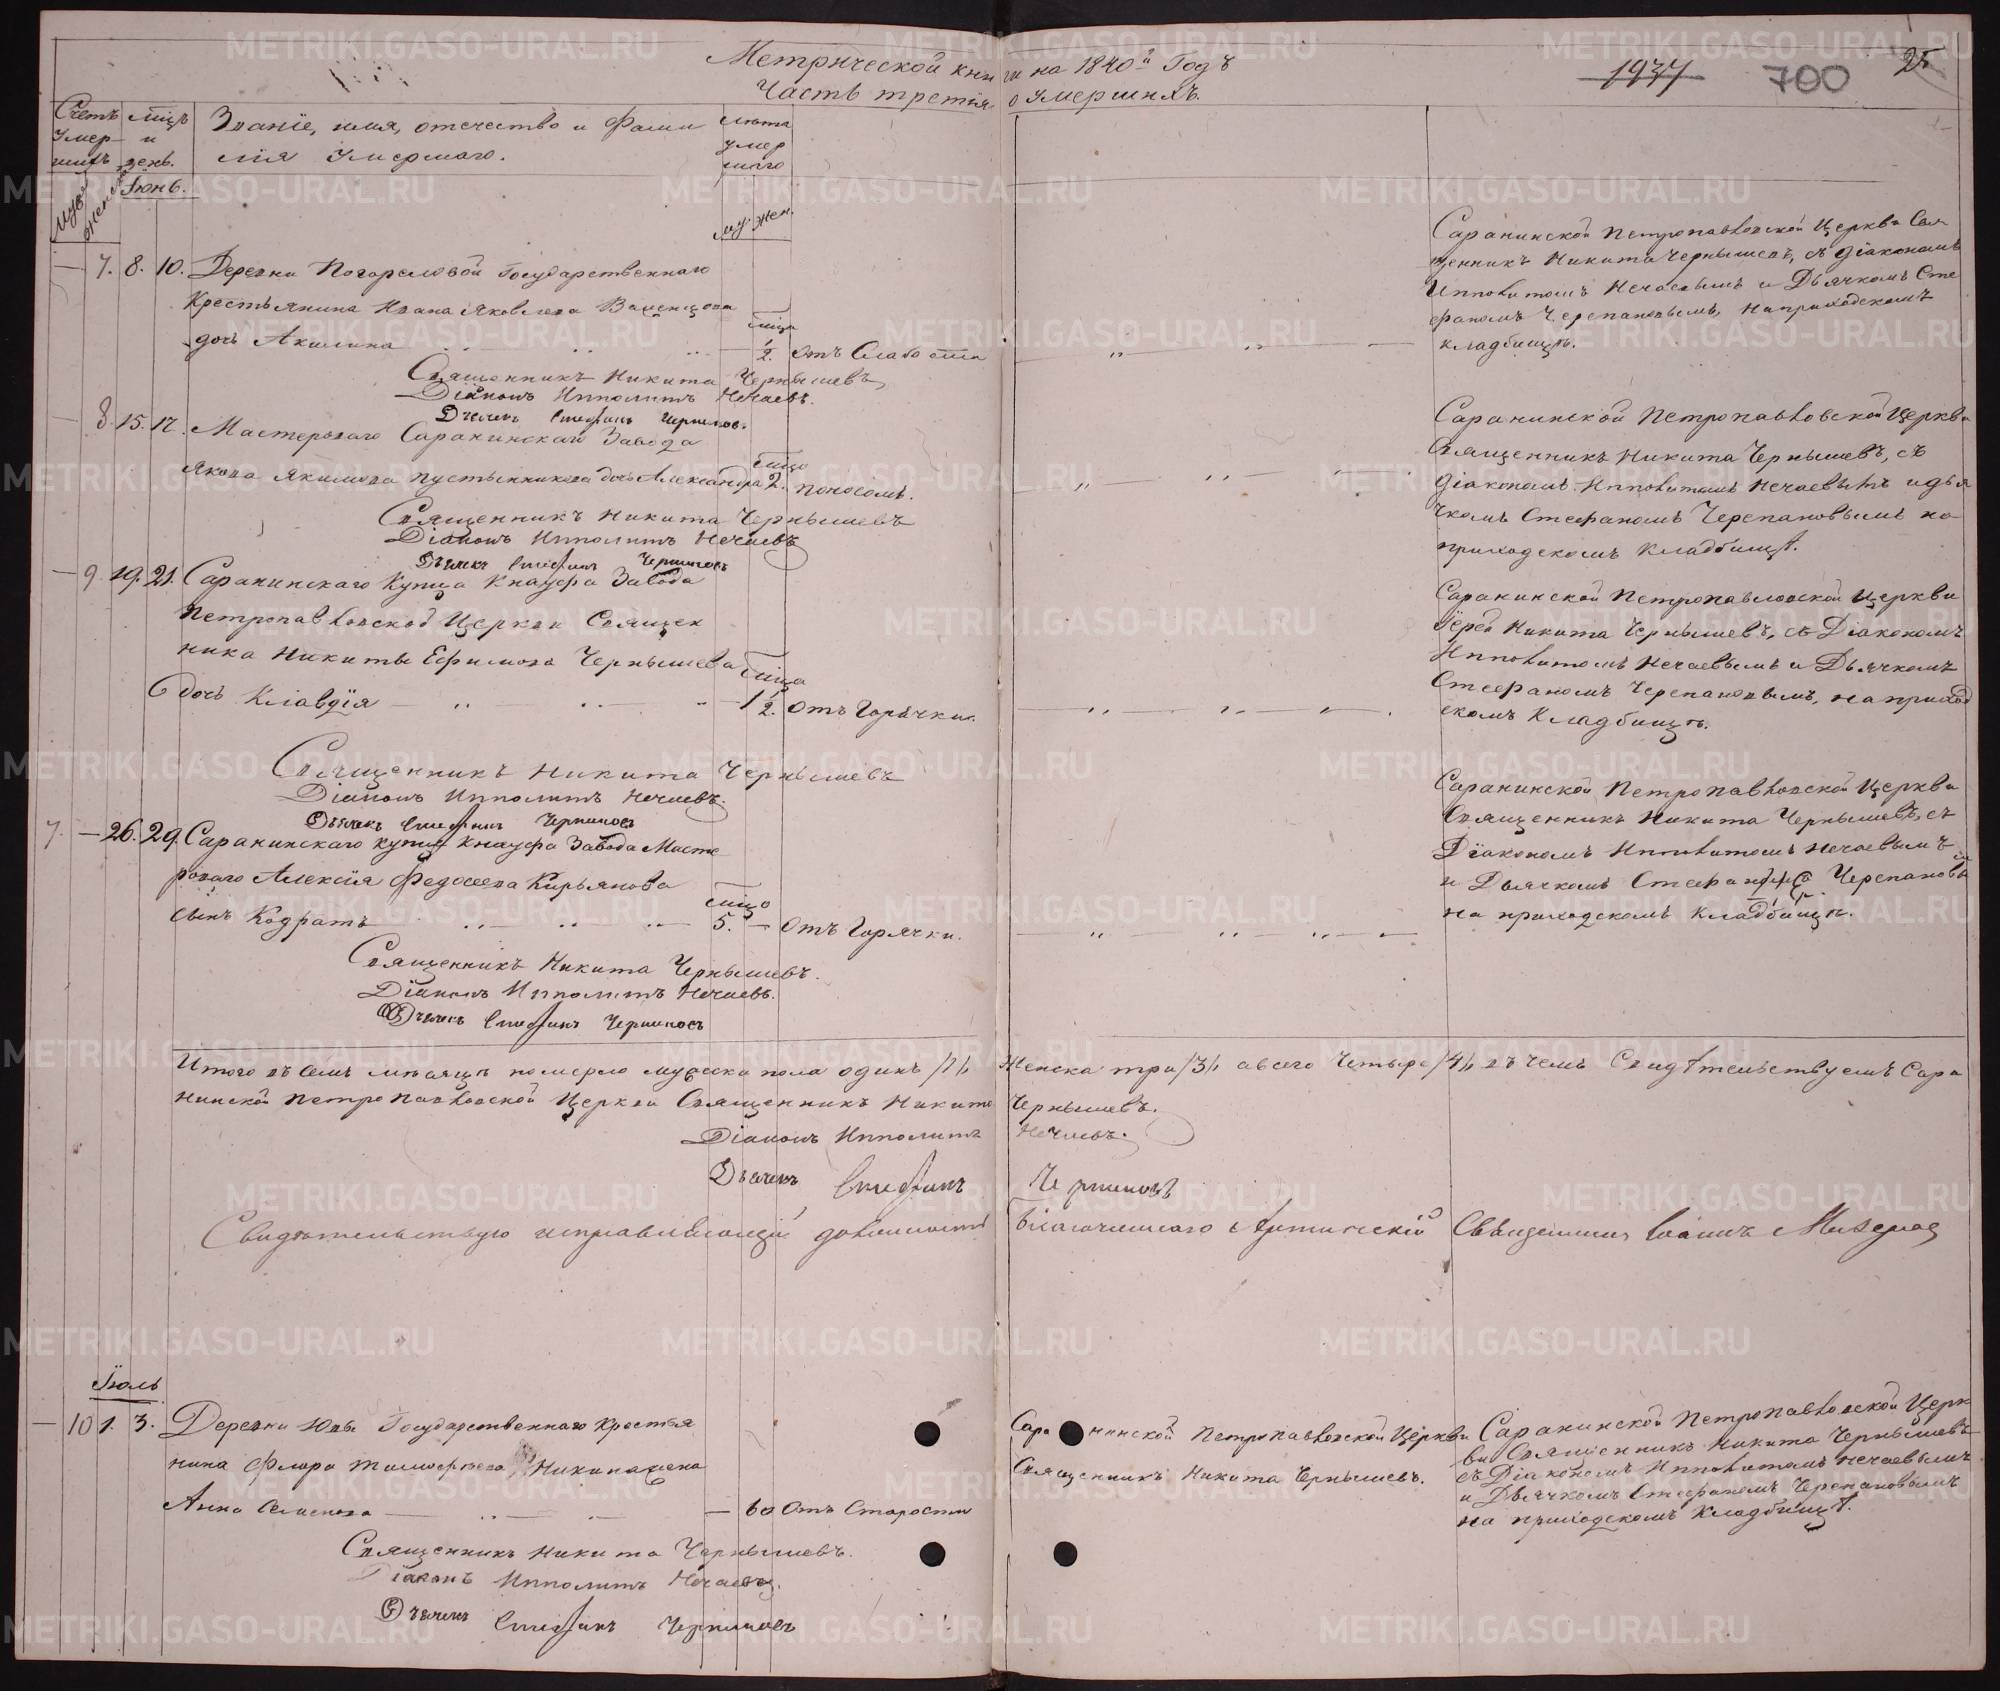 Метрической книги на 1840й Годъ
Часть третія о Умершихъ.
1937 700 25
Счетъ Умерших
мцъ и день.
Званіе, имя, отечество и фамилія Умершаго.
лѣта умершаго
Муж женска
Іюнь.
му. жен.
— 7. 8. 10. Деревни Погореловой Государственнаго
Крестьянина Ивана Яковлева
дочь Акилина мца 1/2. отъ Слабости
Священникъ Никита Чернышевъ,
Діаконъ Ипполитъ Нечаевъ.
Дьячекъ Стефанъ
Саранинской Петропавловской Церкви Священникъ Никита Чернышевъ, съ діакономъ
Ипполитомъ Нечаевымъ и Дьячкомъ Стефаномъ Черепановымъ, на приходскомъ
кладбищѣ.
— 8. 15. 17. Мастероваго Саранинскаго Завода
Якова Якимова Пустынникова дочь Александра мцо 2. поносомъ.
Священникъ Никита Чернышевъ
Діаконъ Ипполитъ Нечаевъ
Дьячекъ Стефанъ
Саранинской Петропавловской Церкви
Священникъ Никита Чернышевъ, съ
діакономъ Ипполитомъ Нечаевымъ и дьячкомъ Стефаномъ Черепановымъ на
приходскомъ кладбищѣ.
— 9 19. 21. Саранинскаго Купца Кнауфа Завода
Петропавловской Церкви Священника Никиты Ефимова Чернышева
дочь Клавдія мца 1 1/2. отъ Горячки.
Священникъ Никита Чернышевъ
Діаконъ Ипполитъ Нечаевъ.
Дьячекъ Стефанъ
Саранинской Петропавловской Церкви
Іерей Никита Чернышевъ, съ Діакономъ
Ипполитомъ Нечаевымъ и Дьячкомъ
Стефаномъ Черепановымъ, на приходскомъ Кладбищѣ.
7. — 26. 29. Саранинскаго купца Кнауфа Завода Мастероваго Алексія Федосеева Кирьянова
сынъ Кодратъ мцо 5. — отъ Горячки.
Священникъ Никита Чернышевъ.
Діаконъ Ипполитъ Нечаевъ.
Дьячекъ Стефанъ
Саранинской Петропавловской Церкви
Священникъ Никита Чернышевъ, съ
Діакономъ Ипполитомъ Нечаевымъ
и Дьячкомъ Стефаномъ Черепановымъ
на приходскомъ кладбищѣ.
Итого въ семъ мѣсяцѣ померло мужеска пола одинъ /1/, Женска три /3/, а всего Четыре /4/, въ чемъ Свидѣтельствуемъ Саранинской Петропавловской Церкви Священникъ Никита Чернышевъ.
Діаконъ Ипполитъ Нечаевъ.
Дьячекъ Стефанъ
Свидѣтельствую исправляющій должность благочиннаго Артинскій Священникъ Іоаннъ
Іюль
— 10 1. 3. Деревни Ювы Государственнаго Крестьянина Флора Тимофеева жена
Анна Семенова — 60 Отъ Старости
Священникъ Никита Чернышевъ.
Діаконъ Ипполитъ Нечаевъ.
Дьячекъ Стефанъ
Саранинской Петропавловской Церкви
Священникъ Никита Чернышевъ.
Саранинской Петропавловской Церкви Священникъ Никита Чернышевъ
съ Діакономъ Ипполитомъ Нечаевымъ
и Дьячкомъ Стефаномъ Черепановымъ
на приходскомъ кладбищѣ.
METRIKI.GASO-URAL.RU